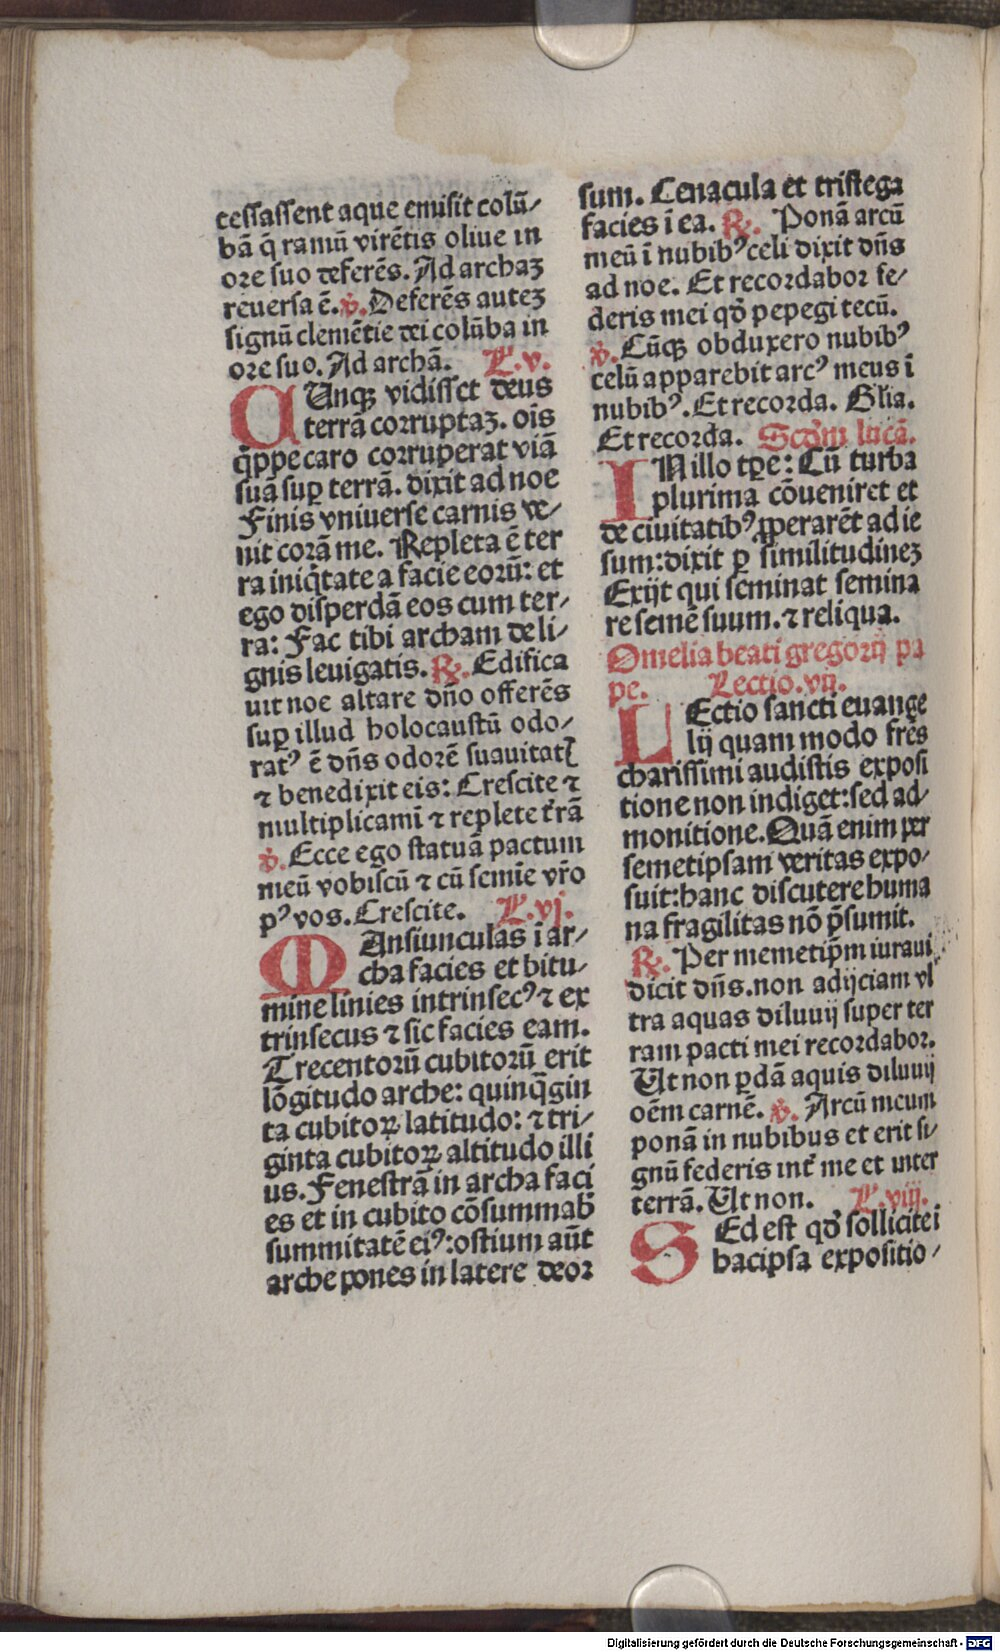 cessassent aque emisit colū⸗
bā q̄ ramū virētis oliue in
ore suo deferēs. Ad archaꝫ
reuersa ē. ℣. Deferēs auteꝫ
signū clemētie dei colūba in
ore suo. Ad archā. L. v.
CUnqꝫ vidisset deus
terrā corruptaꝫ. oīs
q̄ppe caro corruperat viā
suā suꝑ terrā. dixit ad noe
Finis vniuerse carnis ve⸗
nit corā me. Repleta ē ter
ra iniq̄tate a facie eorū: et
ego disperdā eos cum ter⸗
ra: Fac tibi archam de li⸗
gnis leuigatis. ℟. Edifica
uit noe altare dn̄o offerēs
suꝑ illud holocaustū odo⸗
ratꝰ ē dn̄s odorē suauitatꝭ
⁊ benedixit eis: Crescite ⁊
multiplicamī ⁊ replete t̄rā
℣. Ecce ego statuā pactum
meū vobiscū ⁊ cū semīe vr̄o
pꝰ vos. Crescite. L. vj.
MAnsiunculas ī ar⸗
cha facies et bitu⸗
mine linies intrinsecꝰ ⁊ ex
trinsecus ⁊ sic facies eam.
Trecentorū cubitorū erit
lōgitudo arche: quinq̄gin
ta cubitoꝝ latitudo: ⁊ tri⸗
ginta cubitoꝝ altitudo illi
us. Fenestrā in archa faci
es et in cubito cōsummab̄
summitatē eiꝰ: ostium aūt
arche pones in latere deor
sum. Cenacula et tristega
facies ī ea. ℟. Ponā arcū
meū ī nubibꝰ celi dixit dn̄s
ad noe. Et recordabor fe⸗
deris mei qd̓ pepegi tecū.
℣. Cūqꝫ obduxero nubibꝰ
celū apparebit arcꝰ meus ī
nubibꝰ. Et recorda. Glia.
Et recorda. Scd̓m lucā.
IN illo tꝑe: Cū turba
plurima cōueniret et
de ciuitatibꝰ ꝓperarēt ad ie
sum: dixit ꝑ similitudineꝫ
Exijt qui seminat semina
re semē suum. ⁊ reliqua.
Omelia beati gregorij pa
pe. Lectio. vij.
LEctio sancti euange
lij quam modo fr̄es
charissimi audistis exposi
tione non indiget: sed ad⸗
monitione. Quā enim per
semetipsam veritas expo⸗
suit: hanc discutere huma
na fragilitas nō p̄sumit.
℟. Per memetip̄m iuraui
dicit dn̄s. non adijciam vl
tra aquas diluuij super ter
ram pacti mei recordabor.
Ut non ꝑdā aquis diluuij
oēm carnē. ℣. Arcū meum
ponā in nubibus et erit si⸗
gnū federis int̄ me et inter
terrā. Ut non. L. viij.
SEd est qd̓ sollicite ī
hac ipsa expositio⸗
Digitalisierung gefördert durch die Deutsche Forschungsgemeinschaft - DFG